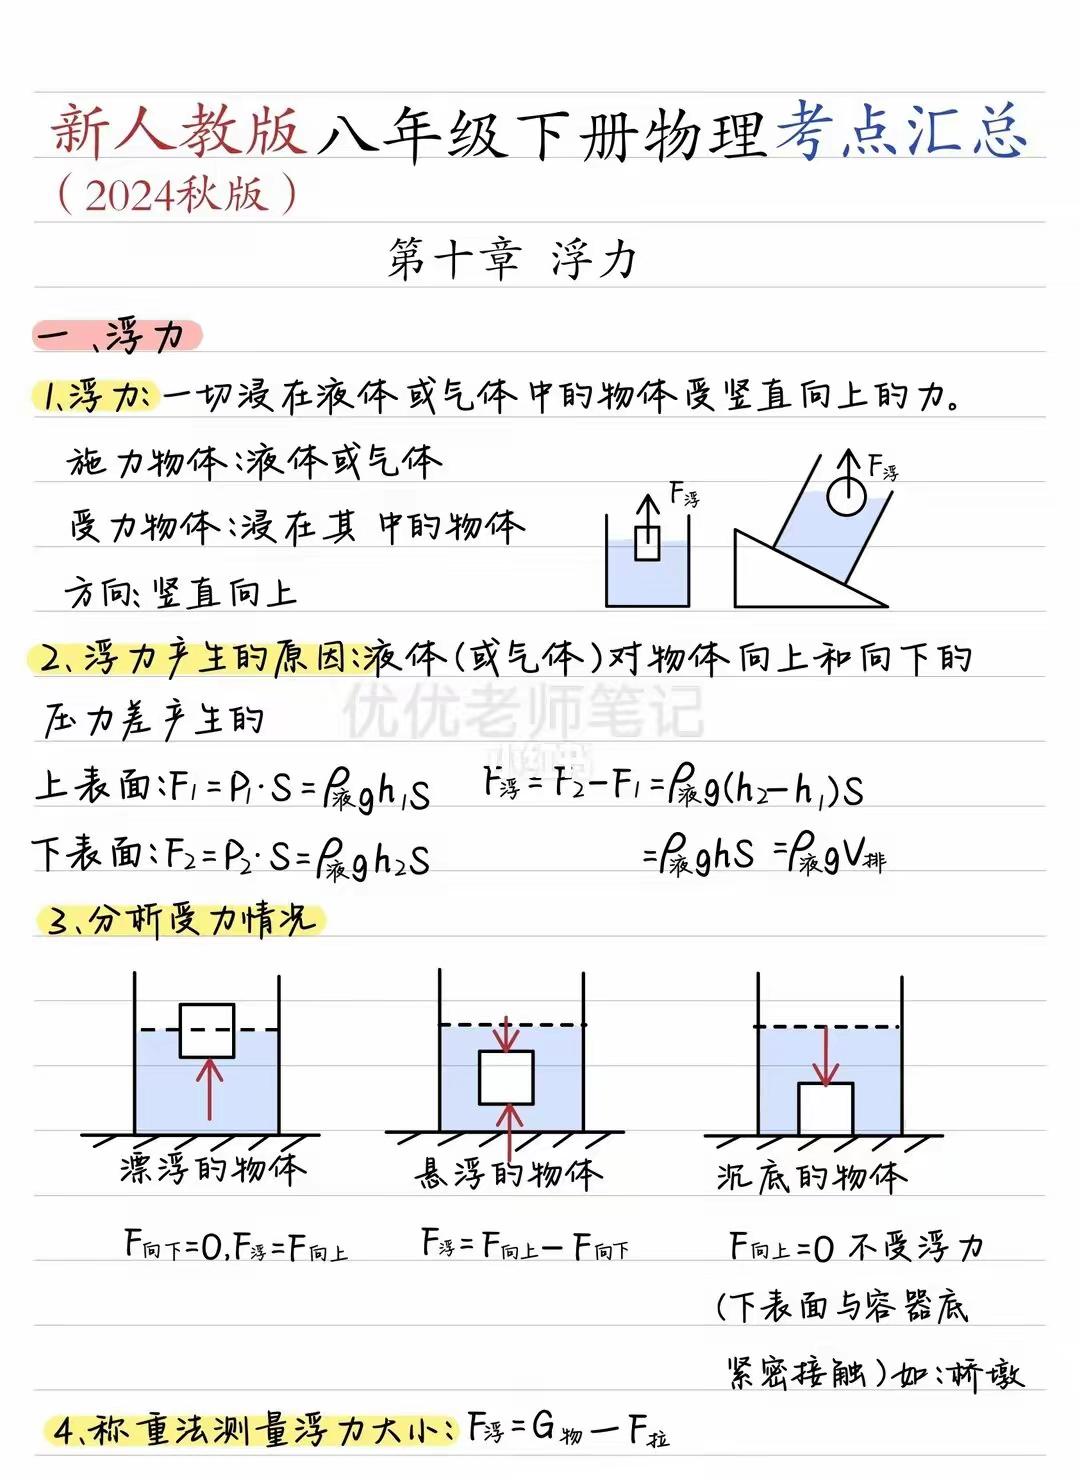 新人教版八年级下册物理考点汇总
（2024秋版）
第十章 浮力
一、浮力
1.浮力:一切浸在液体或气体中的物体受竖直向上的力。
施力物体:液体或气体
受力物体:浸在其中的物体
方向:竖直向上
F浮
F浮
2、浮力产生的原因:液体(或气体)对物体向上和向下的
压力差产生的
优优老师笔记
小红书
上表面:F₁=P₁·S=ρ液gh₁S F浮=F₂-F₁=ρ液g(h₂-h₁)S
下表面:F₂=P₂·S=ρ液gh₂S =ρ液ghS =ρ液gV排
3、分析受力情况
漂浮的物体 悬浮的物体 沉底的物体
F向下=0,F浮=F向上 F浮=F向上-F向下 F向上=0 不受浮力
(下表面与容器底
紧密接触)如:桥墩
4、称重法测量浮力大小:F浮=G物-F拉